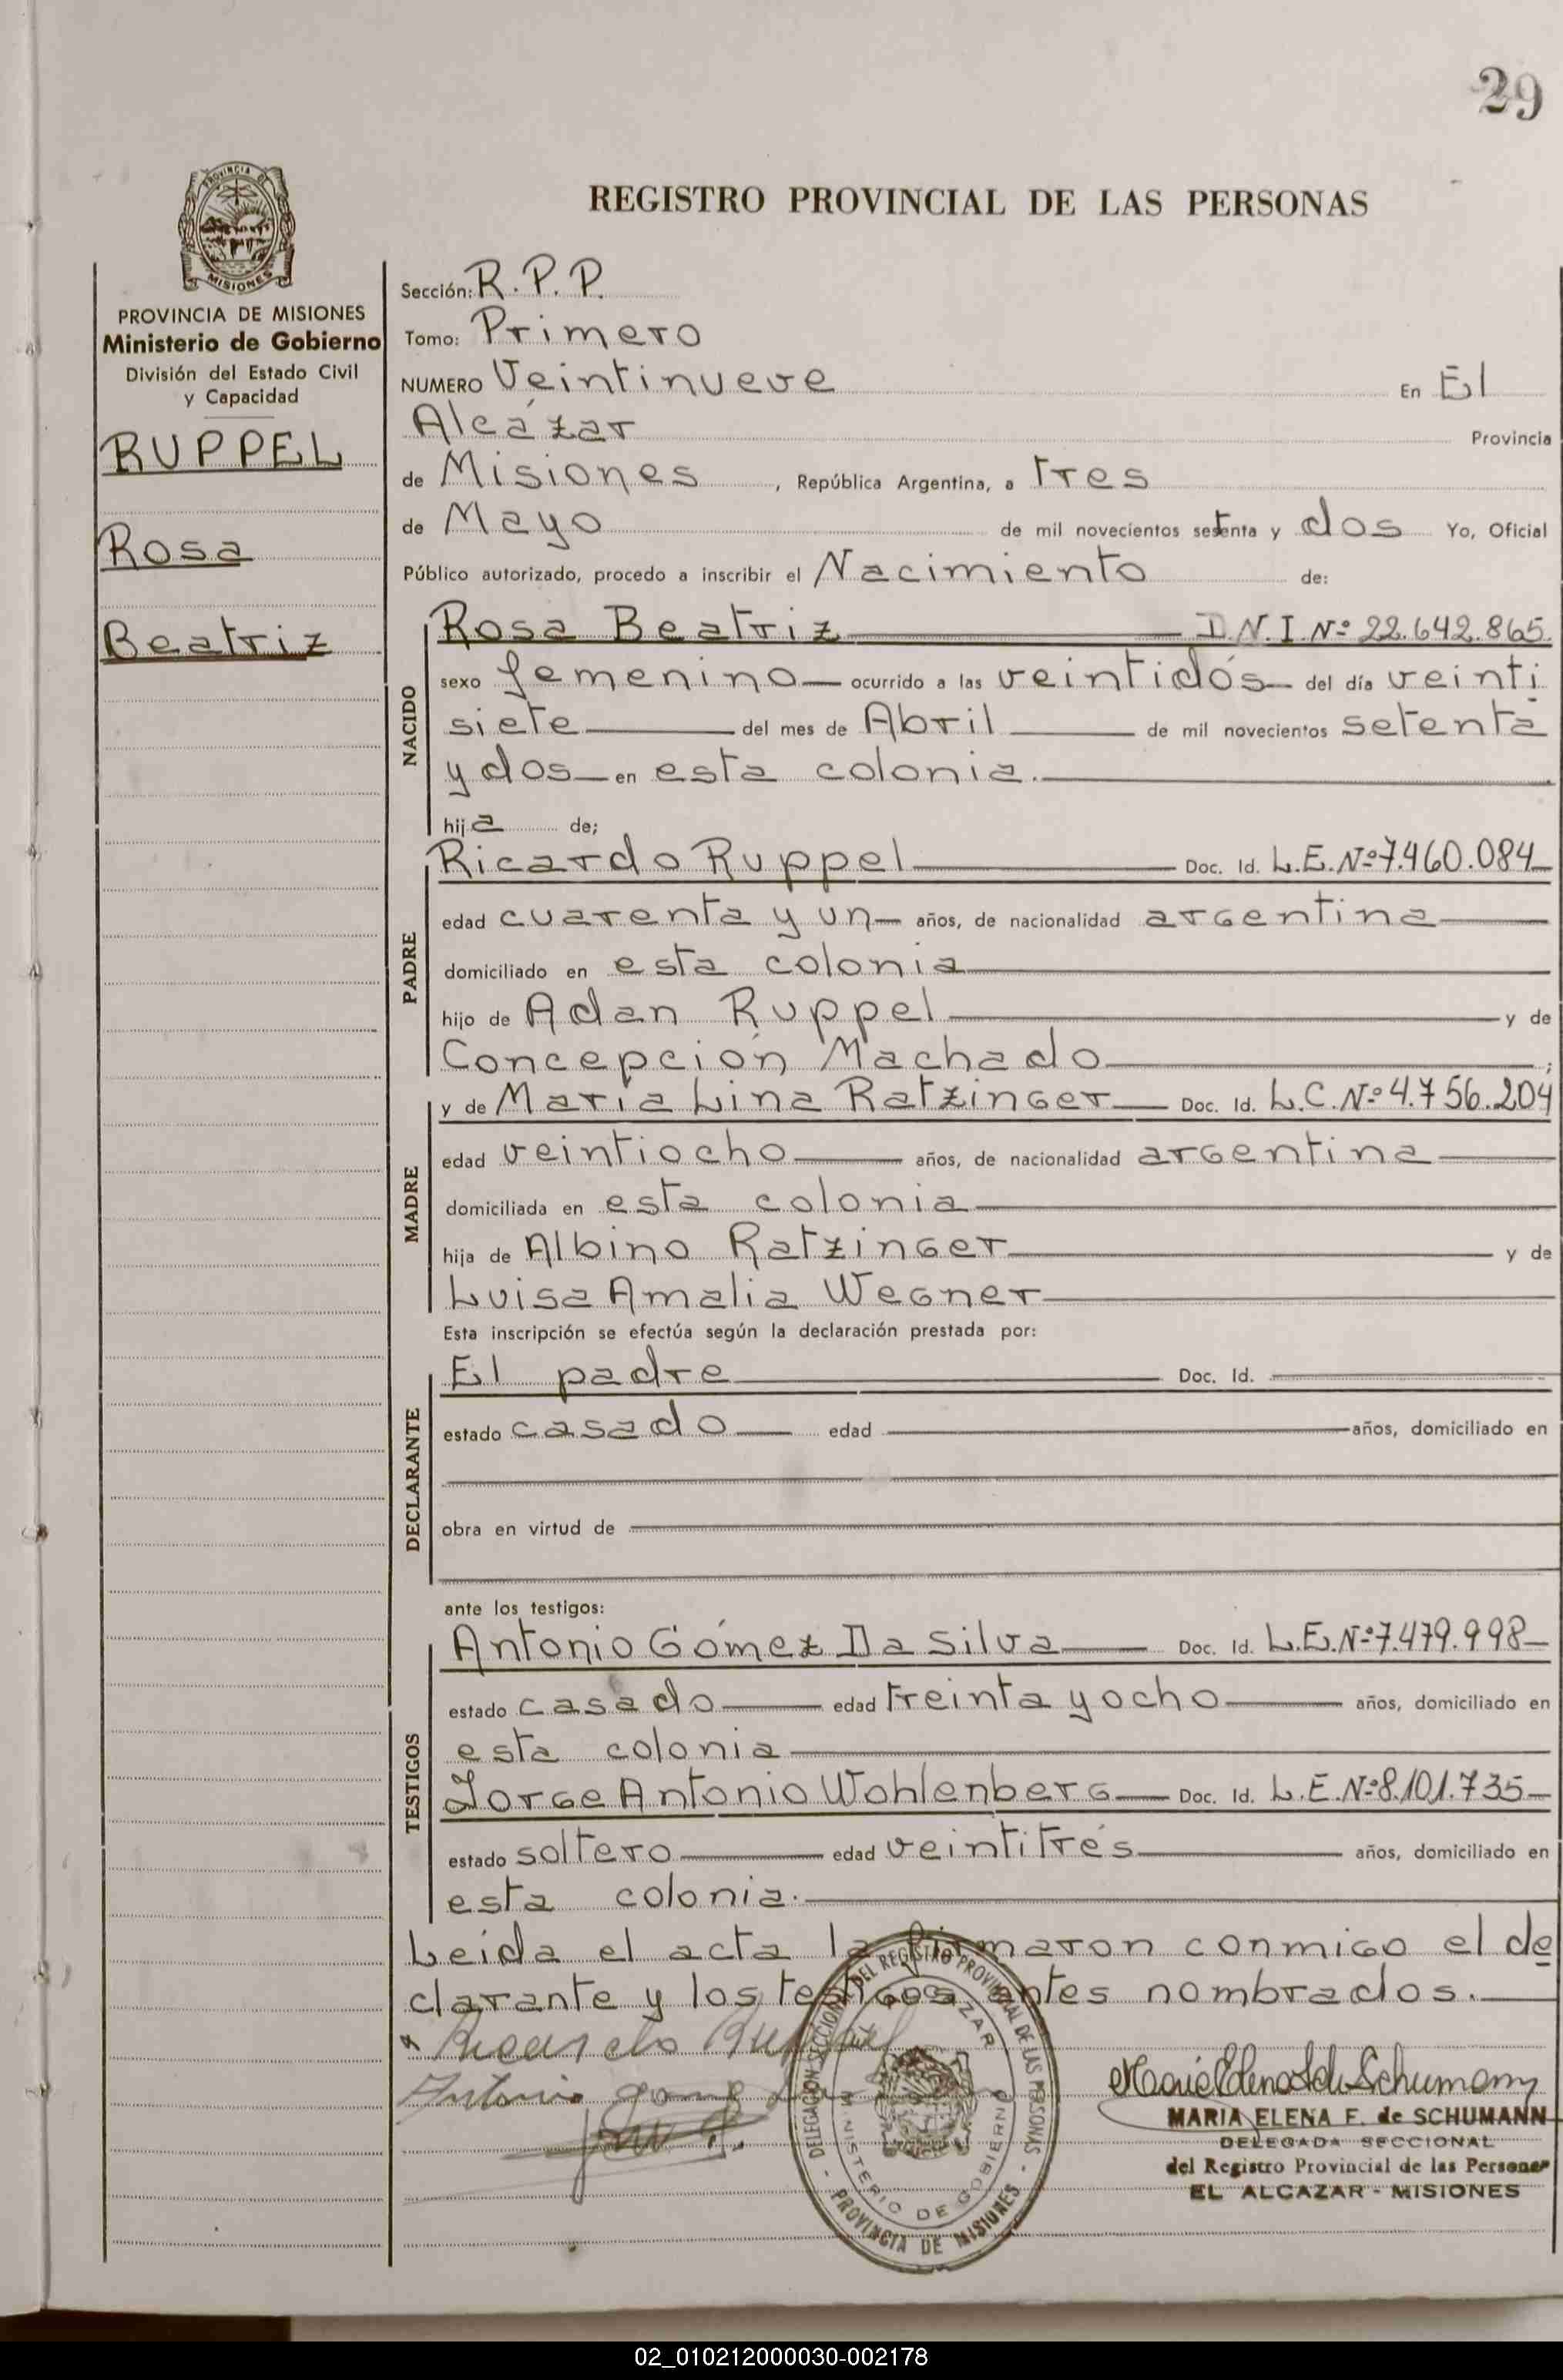 29
PROVINCIA DE
MISIONES
PROVINCIA DE MISIONES
Ministerio de Gobierno
División del Estado Civil
y Capacidad
RUPPEL
Rosa
Beatriz
REGISTRO PROVINCIAL DE LAS PERSONAS
Sección: R.P.P.
Tomo: Primero
NUMERO Veintinueve En El
Alcázar Provincia
de Misiones, República Argentina, a tres
de Mayo de mil novecientos setenta y dos Yo, Oficial
Público autorizado, procedo a inscribir el Nacimiento de:
NACIDO
Rosa Beatriz D.N.I. Nº 22.642.865.
sexo femenino ocurrido a las veintidós del día veinti
siete del mes de Abril de mil novecientos setenta
y dos en esta colonia.
hija de;
PADRE
Ricardo Ruppel Doc. Id. L.E. Nº 7.460.084
edad cuarenta y un años, de nacionalidad argentina
domiciliado en esta colonia
hijo de Adan Ruppel y de
Concepción Machado;
MADRE
y de María Lina Ratzinger Doc. Id. L.C. Nº 4.756.204
edad veintiocho años, de nacionalidad argentina
domiciliada en esta colonia
hija de Albino Ratzinger y de
Luisa Amalia Wegner
Esta inscripción se efectúa según la declaración prestada por:
DECLARANTE
El padre Doc. Id.
estado casado edad años, domiciliado en
obra en virtud de
ante los testigos:
TESTIGOS
Antonio Gómez Da Silva Doc. Id. L.E. Nº 7.479.998
estado casado edad treinta y ocho años, domiciliado en
esta colonia
Jorge Antonio Wohlenberg Doc. Id. L.E. Nº 8.101.735
estado soltero edad veintitrés años, domiciliado en
esta colonia.
Leída el acta la firmaron conmigo el de
clarante y los testigos antes nombrados.
Ricardo Ruppel
Antonio Gomez Da
DELEGACION SECCIONAL DEL REGISTRO PROVINCIAL DE LAS PERSONAS
EL ALCAZAR
MINISTERIO DE GOBIERNO
- PROVINCIA DE MISIONES -
Maria Elena F de Schumann
MARIA ELENA F. de SCHUMANN
DELEGADA SECCIONAL
del Registro Provincial de las Personas
EL ALCAZAR - MISIONES
02_010212000030-002178